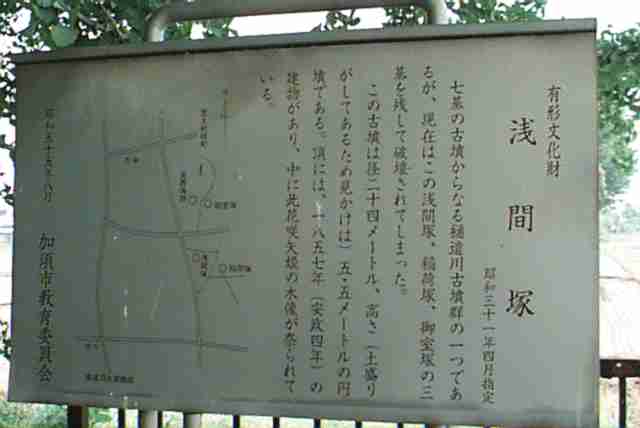 有形文化財
浅間塚
昭和三十一年四月指定
七基の古墳からなる樋遣川古墳群の一つであ
るが、現在はこの浅間塚、稲荷塚、御室塚の三
基を残して破壊されてしまった。
この古墳は径二十四メートル、高さ(土盛り
がしてあるため見かけは)五・五メートルの円
墳である。頂には、一八五七年(安政四年)の
建物があり、中に此花咲矢姫の木像が祭られて
いる。
昭和五十五年八月
加須市教育委員会